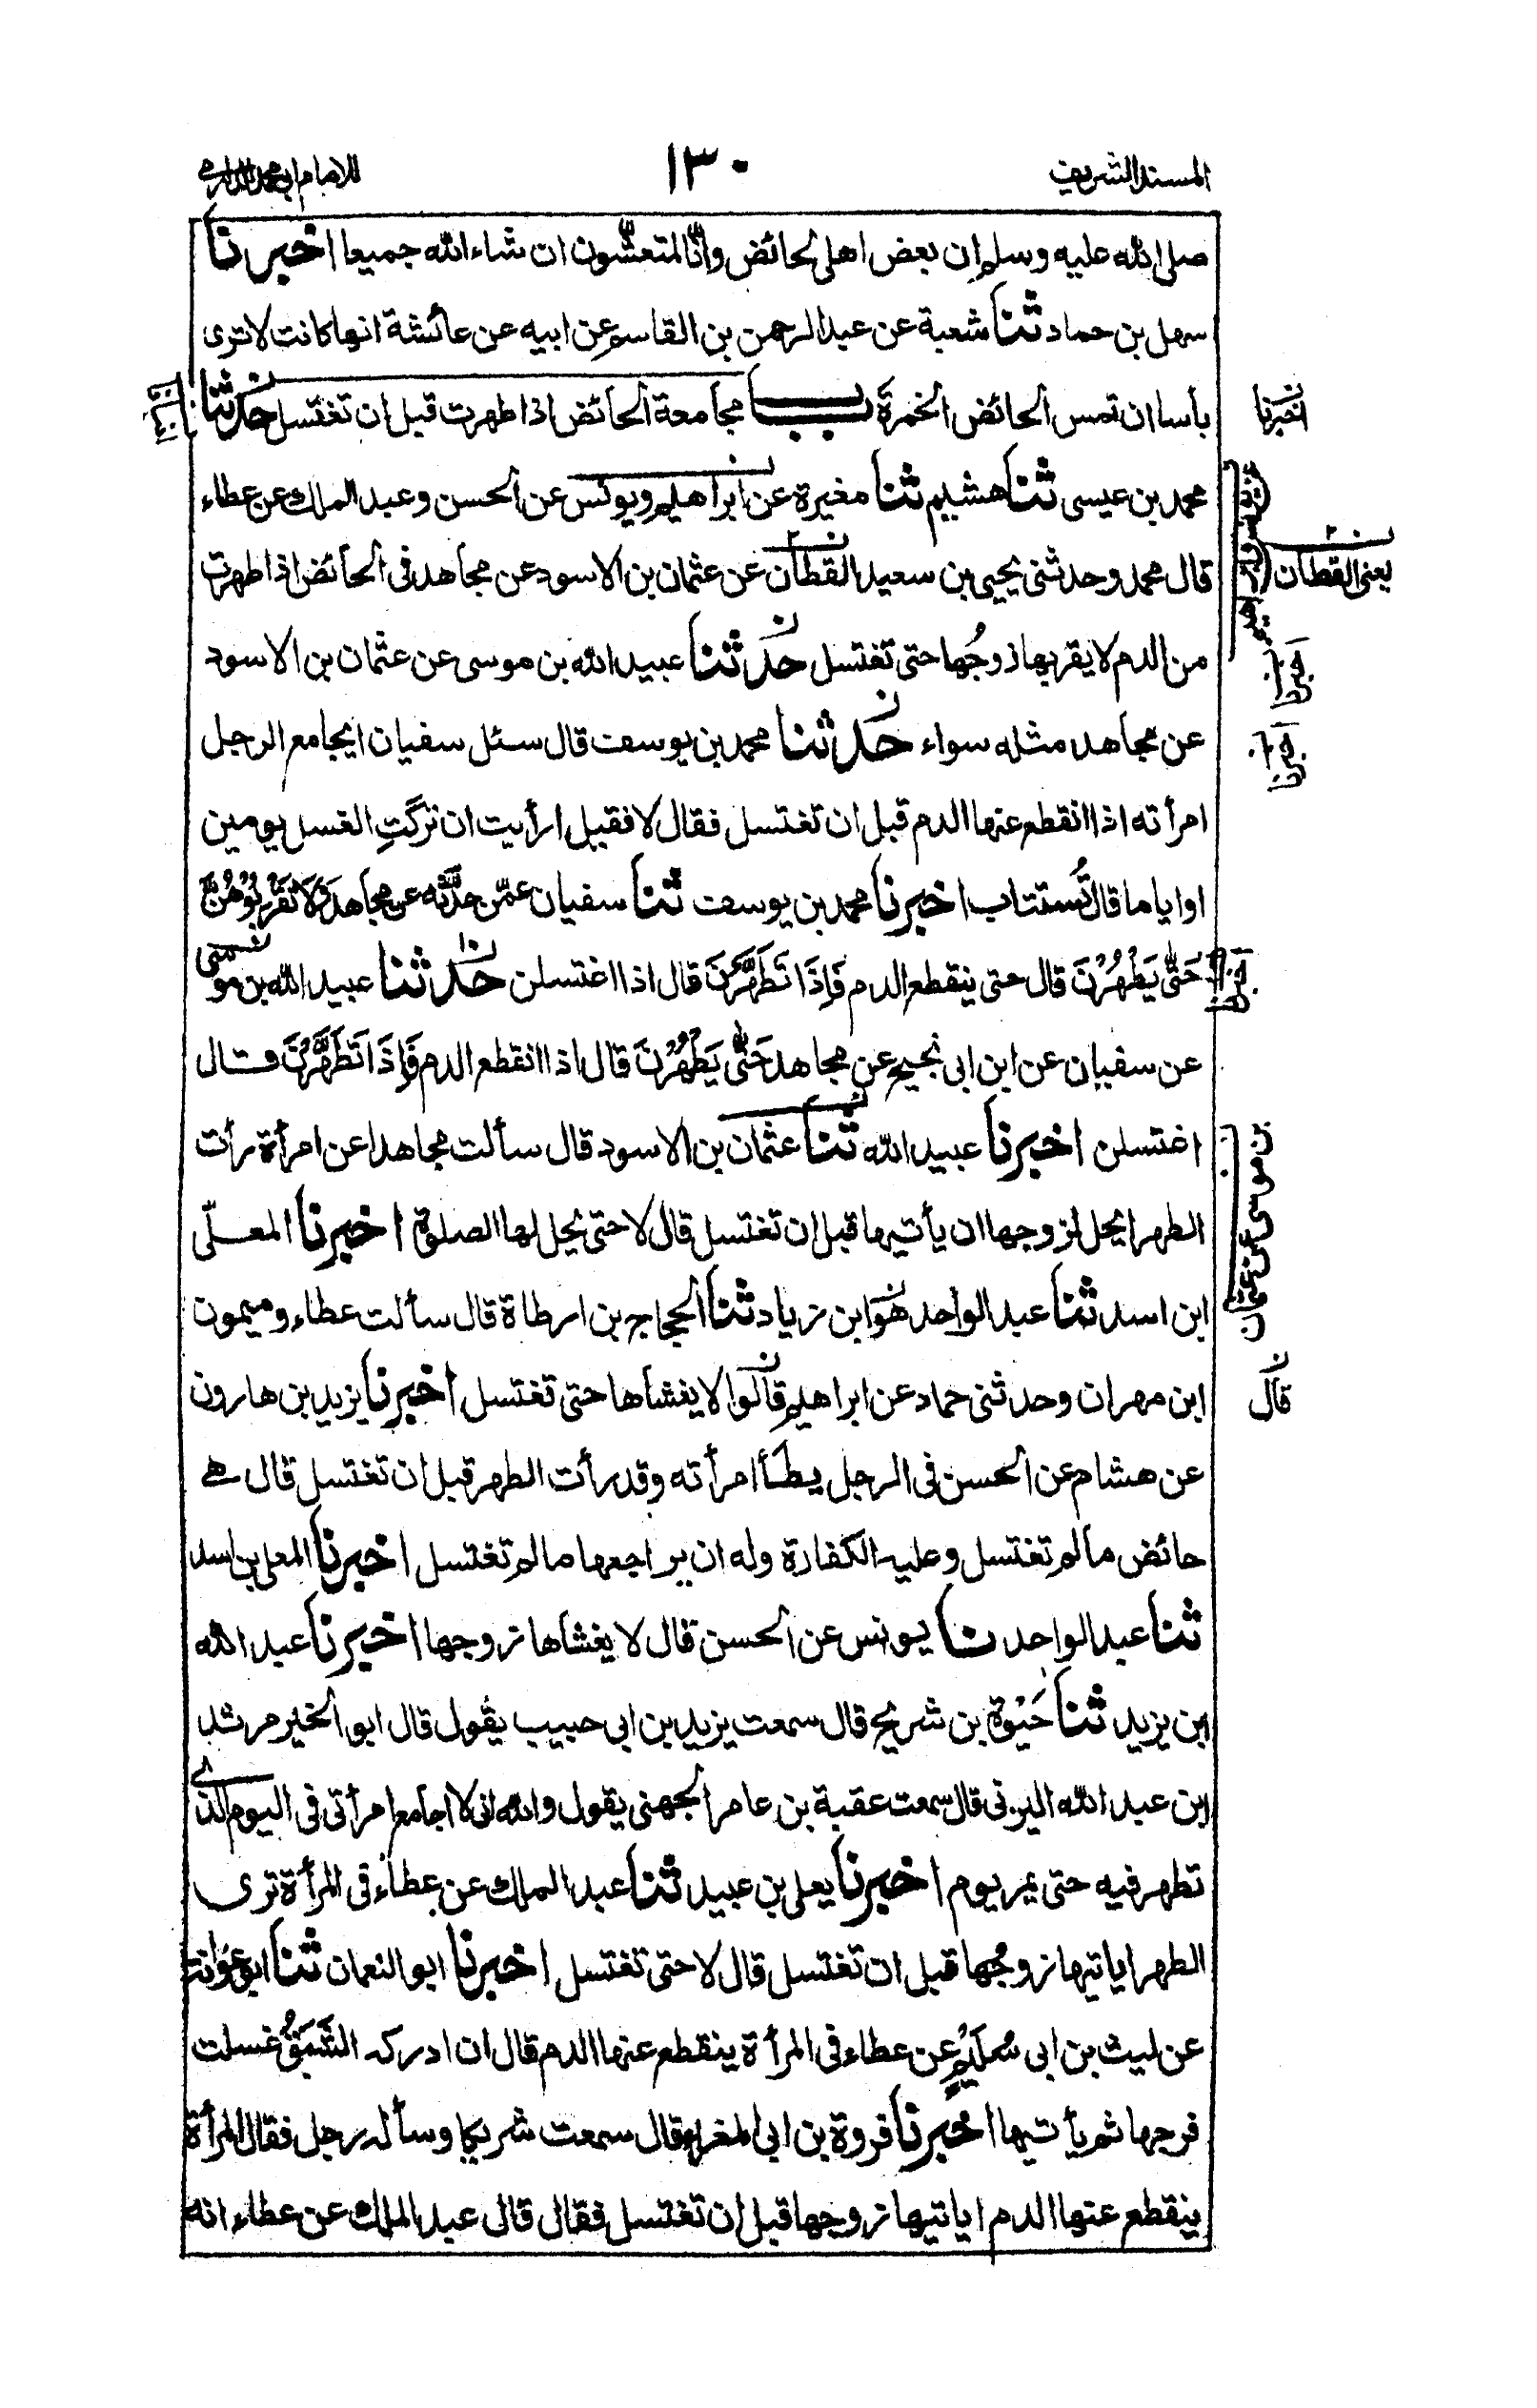 المسند الشريف ١٣٠ للامام ابى محمد الدارمى
صلى الله عليه وسلم ان بعض اهلى لحائض وانا لمتعشّون ان شاء الله جميعا اخبرنا
سهل بن حماد ثنا شعبة عن عبد الرحمن بن القاسم عن ابيه عن عائشة انها كانت لا ترى
بأسا ان تمس الحائض الخمرة باب مجامعة الحائض اذا طهرت قبل ان تغتسل حدثنا
اخبرنا
محمد بن عيسى ثنا هشيم ثنا مغيرة عن ابراهيم ويونس عن الحسن وعبد الملك عن عطاء
قال محمد وحدثنى يحيى بن سعيد القطان عن عثمان بن الاسود عن مجاهد فى الحائض اذا طهرت
يعنى القطان
من الدم لا يقربها زوجُها حتى تغتسل حدثنا عبيد الله بن موسى عن عثمان بن الاسود
اخبرنا
عن مجاهد مثله سواء حدثنا محمد بن يوسف قال سئل سفيان ايجامع الرجل
اخبرنا
امرأته اذا انقطع عنها الدم قبل ان تغتسل فقال لا فقيل ارأيت ان تركتِ الغسل يومين
او اياما قال تُستتاب اخبرنا محمد بن يوسف ثنا سفيان عمّن حدّثه عن مجاهد وَلَا تَقْرَبُوْهُنَّ
حَتّٰى يَطْهُرْنَ قال حتى ينقطع الدم فَاِذَا تَطَهَّرْنَ قال اذا اغتسلن حدثنا عبيد الله بن موسى
اخبرنا
عن سفيان عن ابن ابى نجيح عن مجاهد حَتّٰى يَطْهُرْنَ قال اذا انقطع الدم فَاِذَا تَطَهَّرْنَ قال
اغتسلن اخبرنا عبيد الله ثنا عثمان بن الاسود قال سألت مجاهدا عن امرأة رأت
بن موسى عن عثمان
الطهر ايحل لزوجها ان يأتيها قبل ان تغتسل قال لا حتى يحل لها الصلوة اخبرنا المعلّى
ابن اسد ثنا عبد الواحد هو ابن زياد ثنا الحجاج بن ارطاة قال سألت عطاء وميمون
ابن مهران وحدثنى حماد عن ابراهيم قالوا لا يغشاها حتى تغتسل اخبرنا يزيد بن هارون
قال
عن هشام عن الحسن فى الرجل يطأ امرأته وقد رأت الطهر قبل ان تغتسل قال هى
حائض ما لم تغتسل وعليه الكفارة وله ان يراجعها ما لم تغتسل اخبرنا المعلى بن اسد
ثنا عبد الواحد نا يونس عن الحسن قال لا يغشاها زوجها اخبرنا عبد الله
بن يزيد ثنا حَيْوة بن شريح قال سمعت يزيد بن ابى حبيب يقول قال ابو الخير مرثد
ابن عبد الله اليزنى قال سمعت عقبة بن عامر الجهنى يقول والله انى لا اجامع امرأتى فى اليوم الذى
تطهر فيه حتى يمر يوم اخبرنا يعلى بن عبيد ثنا عبد الملك عن عطاء فى المرأة ترى
الطهر اياتيها زوجُها قبل ان تغتسل قال لا حتى تغتسل اخبرنا ابو النعمان ثنا ابو عوانة
عن ليث بن ابى سُليم عن عطاء فى المرأة ينقطع عنها الدم قال ان ادركه الشَبَقُ غسلت
فرجها ثم يأتيها اخبرنا فروة بن ابى المغراء قال سمعت شريكا وسأله رجل فقال المرأة
ينقطع عنها الدم اياتيها زوجها قبل ان تغتسل فقال قال عبد الملك عن عطاء انه